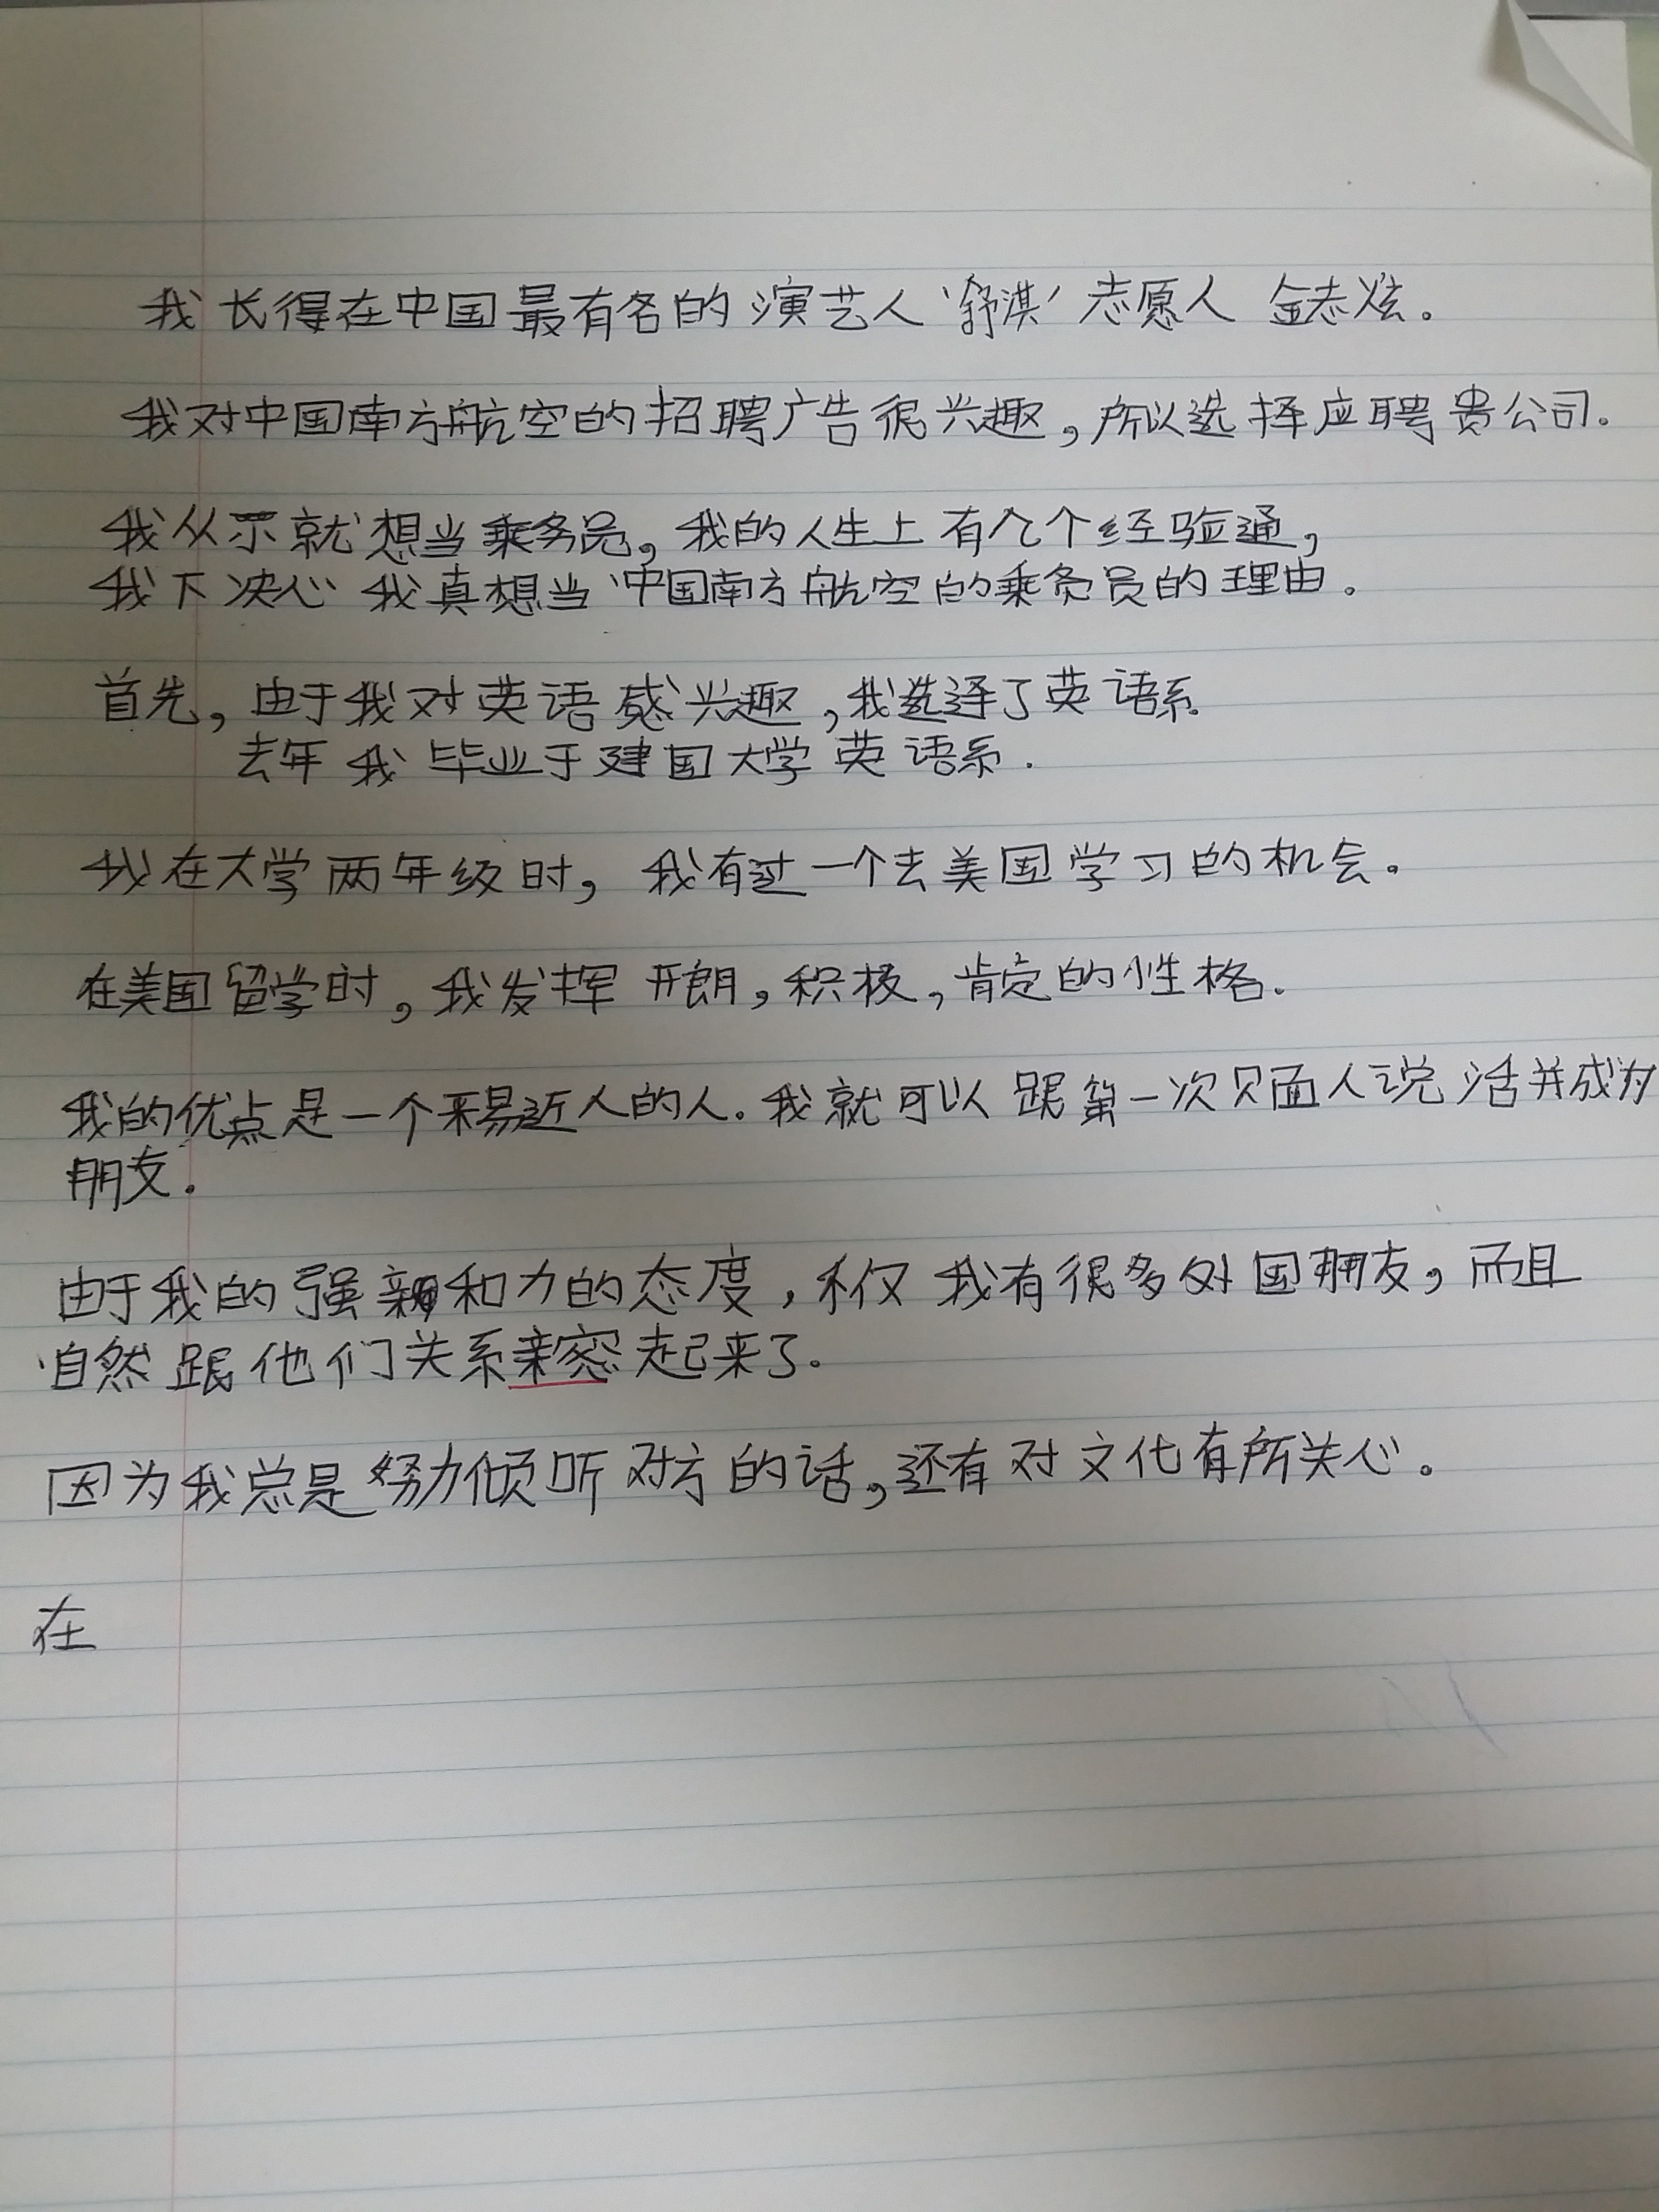 我长得在中国最有名的演艺人'舒淇'志愿人 金志炫。
我对中国南方航空的招聘广告很兴趣,所以选择应聘贵公司.
我从不就想当乘务员,我的人生上有几个经验通,
我下决心 我真想当 中国南方航空的乘务员的理由.
首先,由于我对英语感兴趣,我选择了英语系.
去年我毕业于建国大学英语系.
我在大学两年级时,我有过一个去美国学习的机会.
在美国留学时,我发挥 开朗,积极,肯定的性格.
我的优点是一个平易近人的人.我就可以跟第一次见面人说话并成为
朋友.
由于我的强亲和力的态度,不仅 我有很多外国朋友,而且
自然跟他们关系亲密起来了.
因为我总是努力倾听对方的话,还有对文化有所关心.
在